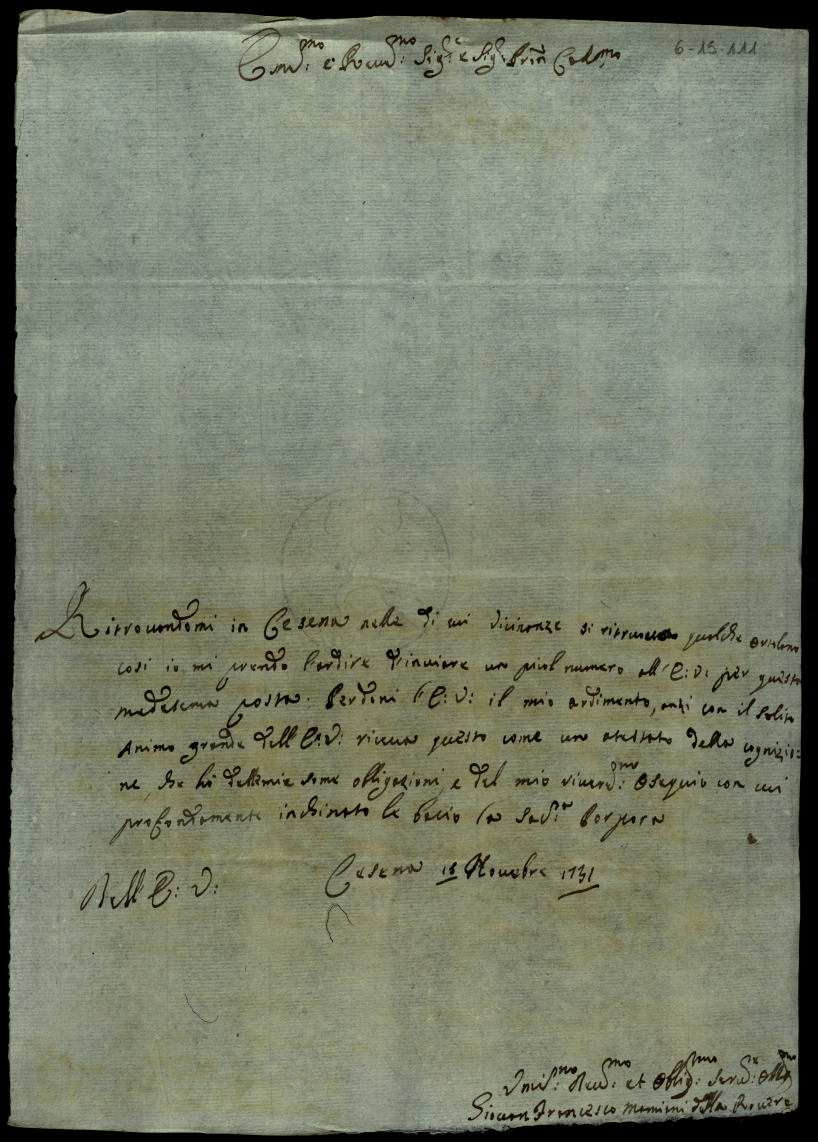 6-15-111
Em.mo e Reverd.mo Sig.e e Sig. Prīn Col.mo
Ritrovandomi in Cesena nelle di cui vicinanze si ritrovava qualche ortolano
cosi io mi prendo l'ardire d'inviare un picol numero all'E: V: per questa
medesema posta. Perdoni l'E: V: il mio ardimento, anzi con il solito
animo grande dell E: V: riceva questo come un atestato della cognizio=
ne, che hò delle mie some obligazioni, e del mio riverd.mo Osequio con cui
profondamente inchinato le bacio la Sac.ra Porpora
Dell E: V: Cesena 18 Novebre 1731
Umil.mo Dev.mo et Oblig.mo Serv.e Obb.mo
Giovan Francesco Mamiani della Rovere